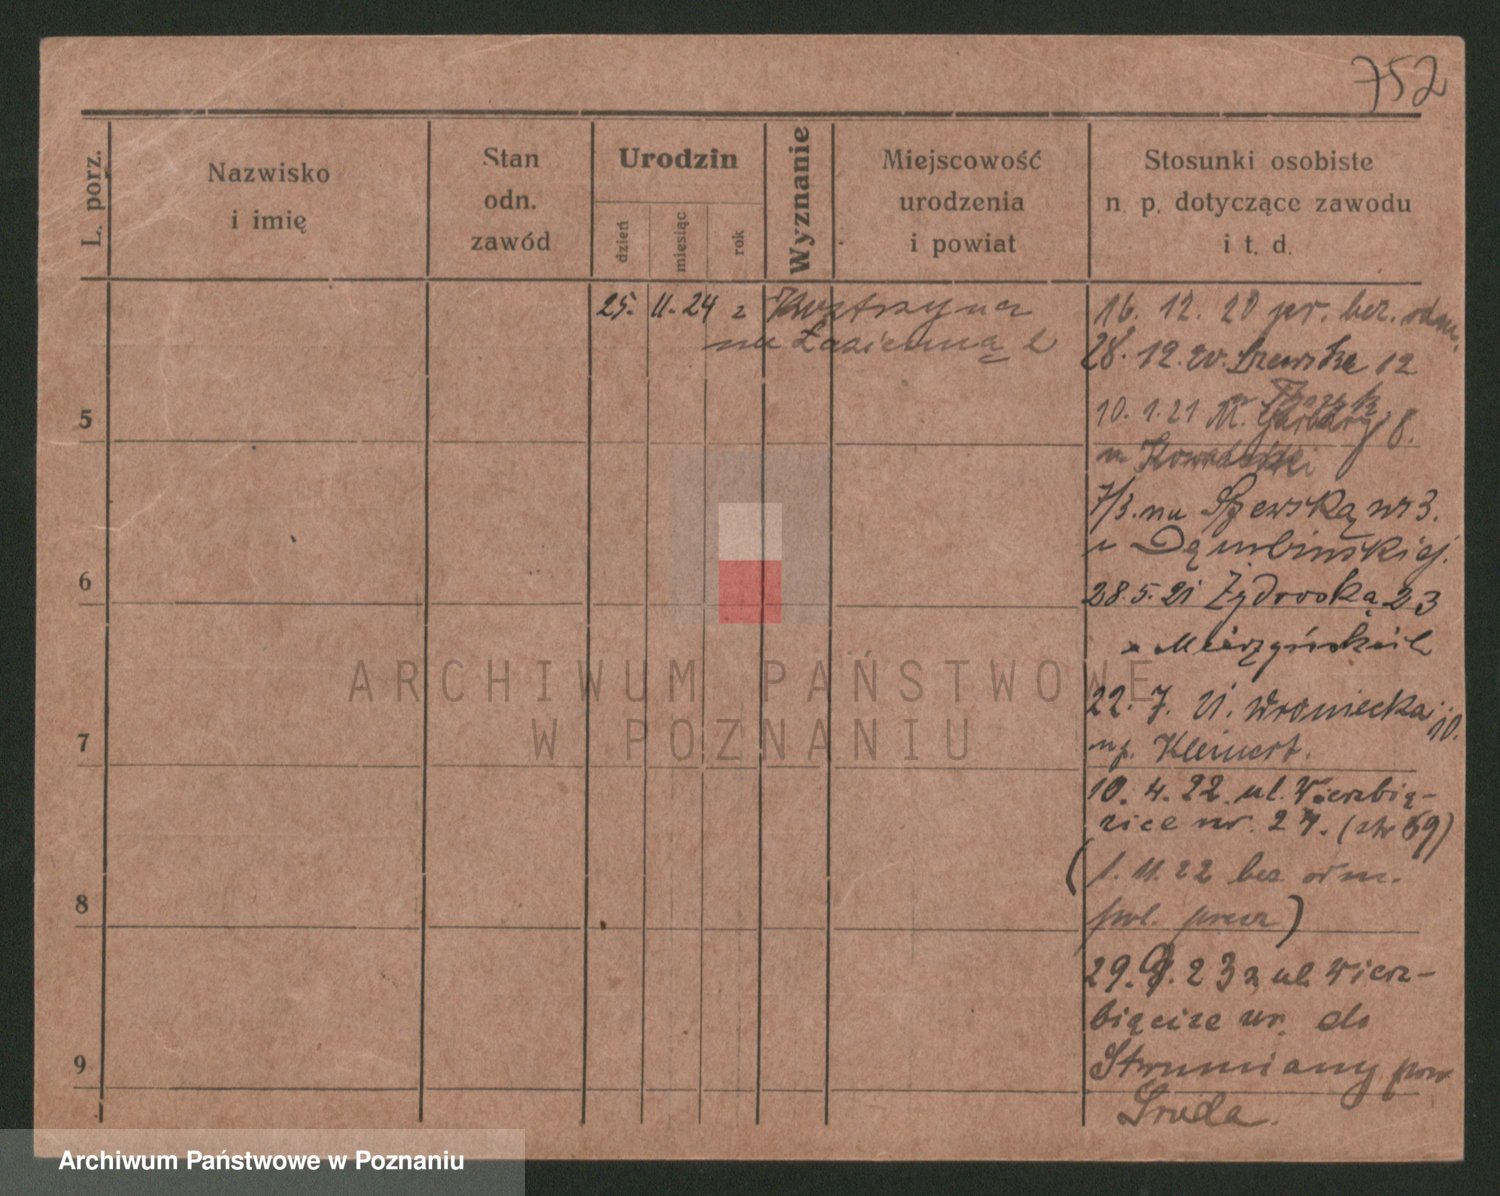 752
L. porz.
Nazwisko
i imię
Stan
odn.
zawód
Urodzin
dzień
miesiąc
rok
Wyznanie
Miejscowość
urodzenia
i powiat
Stosunki osobiste
n. p. dotyczące zawodu
i t. d.
25. 11. 24 z Kostrzyna
na Łazienną 2
16. 12. 20 pr. bez. odm.
28. 12. 20. Szewska 12
10. 1. 21 Garbary 8.
7/3. na Szewską nr 3.
u Dąmbińskiej.
28. 5. 21 Żydowską 23
22. 7. 21. Wroniecka 10.
np. Kleinert.
10. 4. 22. ul. Wierzbię-
cice nr. 27. (str 69)
(1. 11. 22 bez odm.
pol. przez)
29. 9. 23 z ul. Wierz-
bięcice nr. do
Strumiany pow
Środa.
5
6
7
8
9
ARCHIWUM PAŃSTWOWE
W POZNANIU
Archiwum Państwowe w Poznaniu